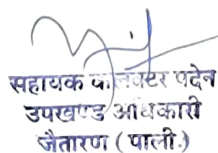 सहायक कलेक्टर पदेन
उपखण्ड अधिकारी
जैतारण (पाली.)